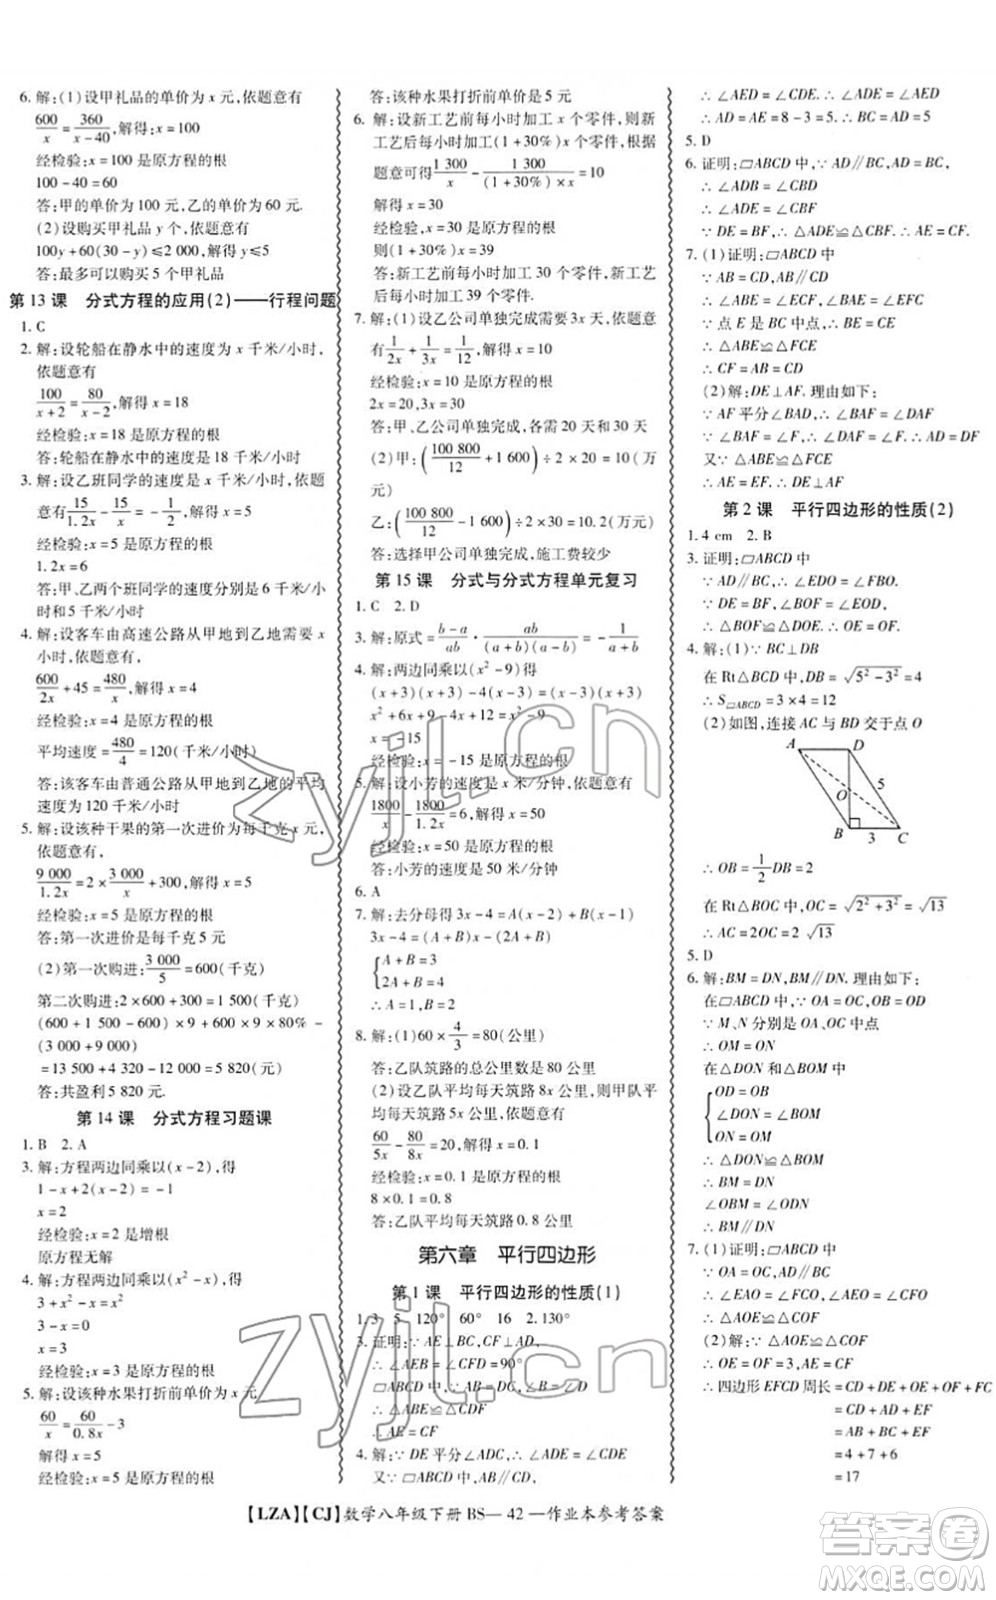 6. 解:(1)设甲礼品的单价为 x 元,依题意有
600/x = 360/(x-40),解得:x = 100
经检验:x = 100 是原方程的根
100 - 40 = 60
答:甲的单价为 100 元,乙的单价为 60 元.
(2)设购买甲礼品 y 个,依题意有
100y + 60(30 - y) ≤ 2 000,解得 y ≤ 5
答:最多可以购买 5 个甲礼品
第 13 课 分式方程的应用(2)——行程问题
1. C
2. 解:设轮船在静水中的速度为 x 千米/小时,
依题意有
100/(x+2) = 80/(x-2),解得 x = 18
经检验:x = 18 是原方程的根
答:轮船在静水中的速度是 18 千米/小时
3. 解:设乙班同学的速度是 x 千米/小时,依题
意有 15/1.2x - 15/x = -1/2,解得 x = 5
经检验:x = 5 是原方程的根
1.2x = 6
答:甲、乙两个班同学的速度分别是 6 千米/
小时、5 千米/小时
4. 解:设客车由高速公路从甲地到乙地需要 x
小时,依题意有,
600/2x + 45 = 480/x,解得 x = 4
经检验:x = 4 是原方程的根
平均速度 = 480/4 = 120(千米/小时)
答:该客车由普通公路从甲地到乙地的平均
速度为 120 千米/小时
5. 解:设该种干果的第一次进价为每千克 x 元,
依题意有,
9 000/1.2x = 2 × 3 000/x + 300,解得 x = 5
经检验:x = 5 是原方程的根
答:第一次进价是每千克 5 元
(2)第一次购进:3 000/5 = 600(千克)
第二次购进:2 × 600 + 300 = 1 500(千克)
(600 + 1 500 - 600) × 9 + 600 × 9 × 80% -
(3 000 + 9 000)
= 13 500 + 4 320 - 12 000 = 5 820(元)
答:共盈利 5 820 元.
第 14 课 分式方程习题课
1. B 2. A
3. 解:方程两边同乘以(x - 2),得
1 - x + 2(x - 2) = -1
x = 2
经检验:x = 2 是增根
原方程无解
4. 解:方程两边同乘以(x² - x),得
3 + x² - x = x²
x = 3
经检验:x = 3 是原方程的根
5. 解:设该种水果打折前单价为 x 元,依题意有
60/x = 60/0.8x - 3
解得 x = 5
经检验:x = 5 是原方程的根
答:该种水果打折前单价是 5 元
6. 解:设新工艺前每小时加工 x 个零件,则新
工艺后每小时加工(1 + 30%)x 个零件,依
题意可得 1 300/x - 1 300/((1 + 30%) × x) = 10
解得 x = 30
经检验,x = 30 是原方程的根
则(1 + 30%)x = 39
答:新工艺前每小时加工 30 个零件,新工艺
后每小时加工 39 个零件.
7. 解:(1)设乙公司单独完成需要 x 天,依题意
有 1/2x + 1/3x = 1/12,解得 x = 10
经检验:x = 10 是原方程的根
2x = 20,3x = 30
答:甲、乙公司单独完成,各需 20 天、30 天
(2)甲:(100 800/12 + 1 600) ÷ 2 × 20 = 10(万
元)
乙:(100 800/12 - 1 600) ÷ 2 × 30 = 10.2(万元)
答:选择甲公司单独完成,施工费较少
第 15 课 分式与分式方程单元复习
1. C 2. D
3. 解:原式 = (b-a)/ab · ab/((a+b)(a-b)) = -1/(a+b)
4. 解:两边同乘以(x² - 9)得
(x+3)(x+3) - 4(x-3) = (x-3)(x+3)
x² + 6x + 9 - 4x + 12 = x² - 9
x = -15
经检验:x = -15 是原方程的根
5. 解:设小芳的速度是 x 米/分钟,依题意有
1800/x - 1800/1.2x = 6,解得 x = 50
经检验:x = 50 是原方程的根
答:小芳的速度是 50 米/分钟
6. A
7. 解:去分母得 3x - 4 = A(x-2) + B(x-1)
3x - 4 = (A+B)x - (2A+B)
{A + B = 3
2A + B = 4
∴ A = 1,B = 2
8. 解:(1)60 × 4/3 = 80(公里)
答:乙队筑路的总公里数是 80 公里
(2)设乙队平均每天筑路 8x 公里,则甲队平
均每天筑路 5x 公里,依题意有
60/5x - 80/8x = 20,解得 x = 0.1
经检验:x = 0.1 是原方程的根
8 × 0.1 = 0.8
答:乙队平均每天筑路 0.8 公里
第六章 平行四边形
第 1 课 平行四边形的性质(1)
1. 3 5 120° 60° 16 2. 130°
3. 证明:∵ AE⊥BC,CF⊥AD,
∴ ∠AEB = ∠CFD = 90°
▱ABCD 中,AB = CD,∠B = ∠D
∴ △ABE≌△CDF
∴ AE = CF
4. 解:∵ DE 平分∠ADC,∴ ∠ADE = ∠CDE
又∵ ▱ABCD 中,AB∥CD
∴ ∠AED = ∠CDE. ∴ ∠ADE = ∠AED
∴ AD = AE = 8 - 3 = 5. ∴ BC = AD = 5
5. D
6. 证明:▱ABCD 中,∵ AD∥BC,AD = BC,
∴ ∠ADB = ∠CBD
∴ ∠ADE = ∠CBF
∵ DE = BF,∴ △ADE≌△CBF,∴ AE = CF.
7. (1)证明:▱ABCD 中
∵ AB = CD,AB∥CD
∴ ∠BAE = ∠F,∠ABE = ∠EFC
∵ 点 E 是 BC 中点,∴ BE = CE
∴ △ABE≌△FCE
∴ CF = AB = CD
(2)解:DE⊥AF. 理由如下:
∵ AF 平分∠BAD,∴ ∠BAF = ∠DAF
∵ ∠BAF = ∠F,∴ ∠DAF = ∠F,∴ AD = DF
又∵ △ABE≌△FCE
∴ AE = EF. ∴ DE⊥AF
第 2 课 平行四边形的性质(2)
1. 4 cm 2. B
3. 证明:▱ABCD 中
∵ AD∥BC,∴ ∠EDO = ∠FBO.
∵ DE = BF,∠BOF = ∠DOE,
∴ △BOF≌△DOE. ∴ OE = OF
4. 解:(1)∵ BC⊥DB
在 Rt△DBC 中,DB = √(5² - 3²) = 4
∴ S▱ABCD = 3 × 4 = 12
(2)如图,连接 AC 与 BD 交于点 O
A D
5
O
B 3 C
∴ OB = 1/2 DB = 2
在 Rt△BOC 中,OC = √(2² + 3²) = √13
∴ AC = 2OC = 2√13
5. D
6. 解:BM = DN,BM∥DN. 理由如下:
在▱ABCD 中,∵ OA = OC,OB = OD
∵ M、N 分别是 OA、OC 中点
∴ OM = ON
在△DON 和△BOM 中
{OD = OB
∠DON = ∠BOM
ON = OM
∴ △DON≌△BOM
∴ BM = DN
∠OBM = ∠ODN
∴ BM∥DN
7. (1)证明:▱ABCD 中
∵ OA = OC,AD∥BC
∴ ∠AEO = ∠FCO,∠AEO = ∠CFO
∴ △AOE≌△COF
(2)解:∵ △AOE≌△COF
∴ OE = OF,AE = CF
∴ 四边形 EFCD 周长 = CD + DE + EF + FC
= CD + AD + EF
= AB + AD + EF
= 4 + 7 + 6
= 17
【LZA】【CJ】数学八年级下册 BS— 42 —作业本参考答案
zyjl.cn
zyjl.cn
作业精灵
MXEQJ.COM